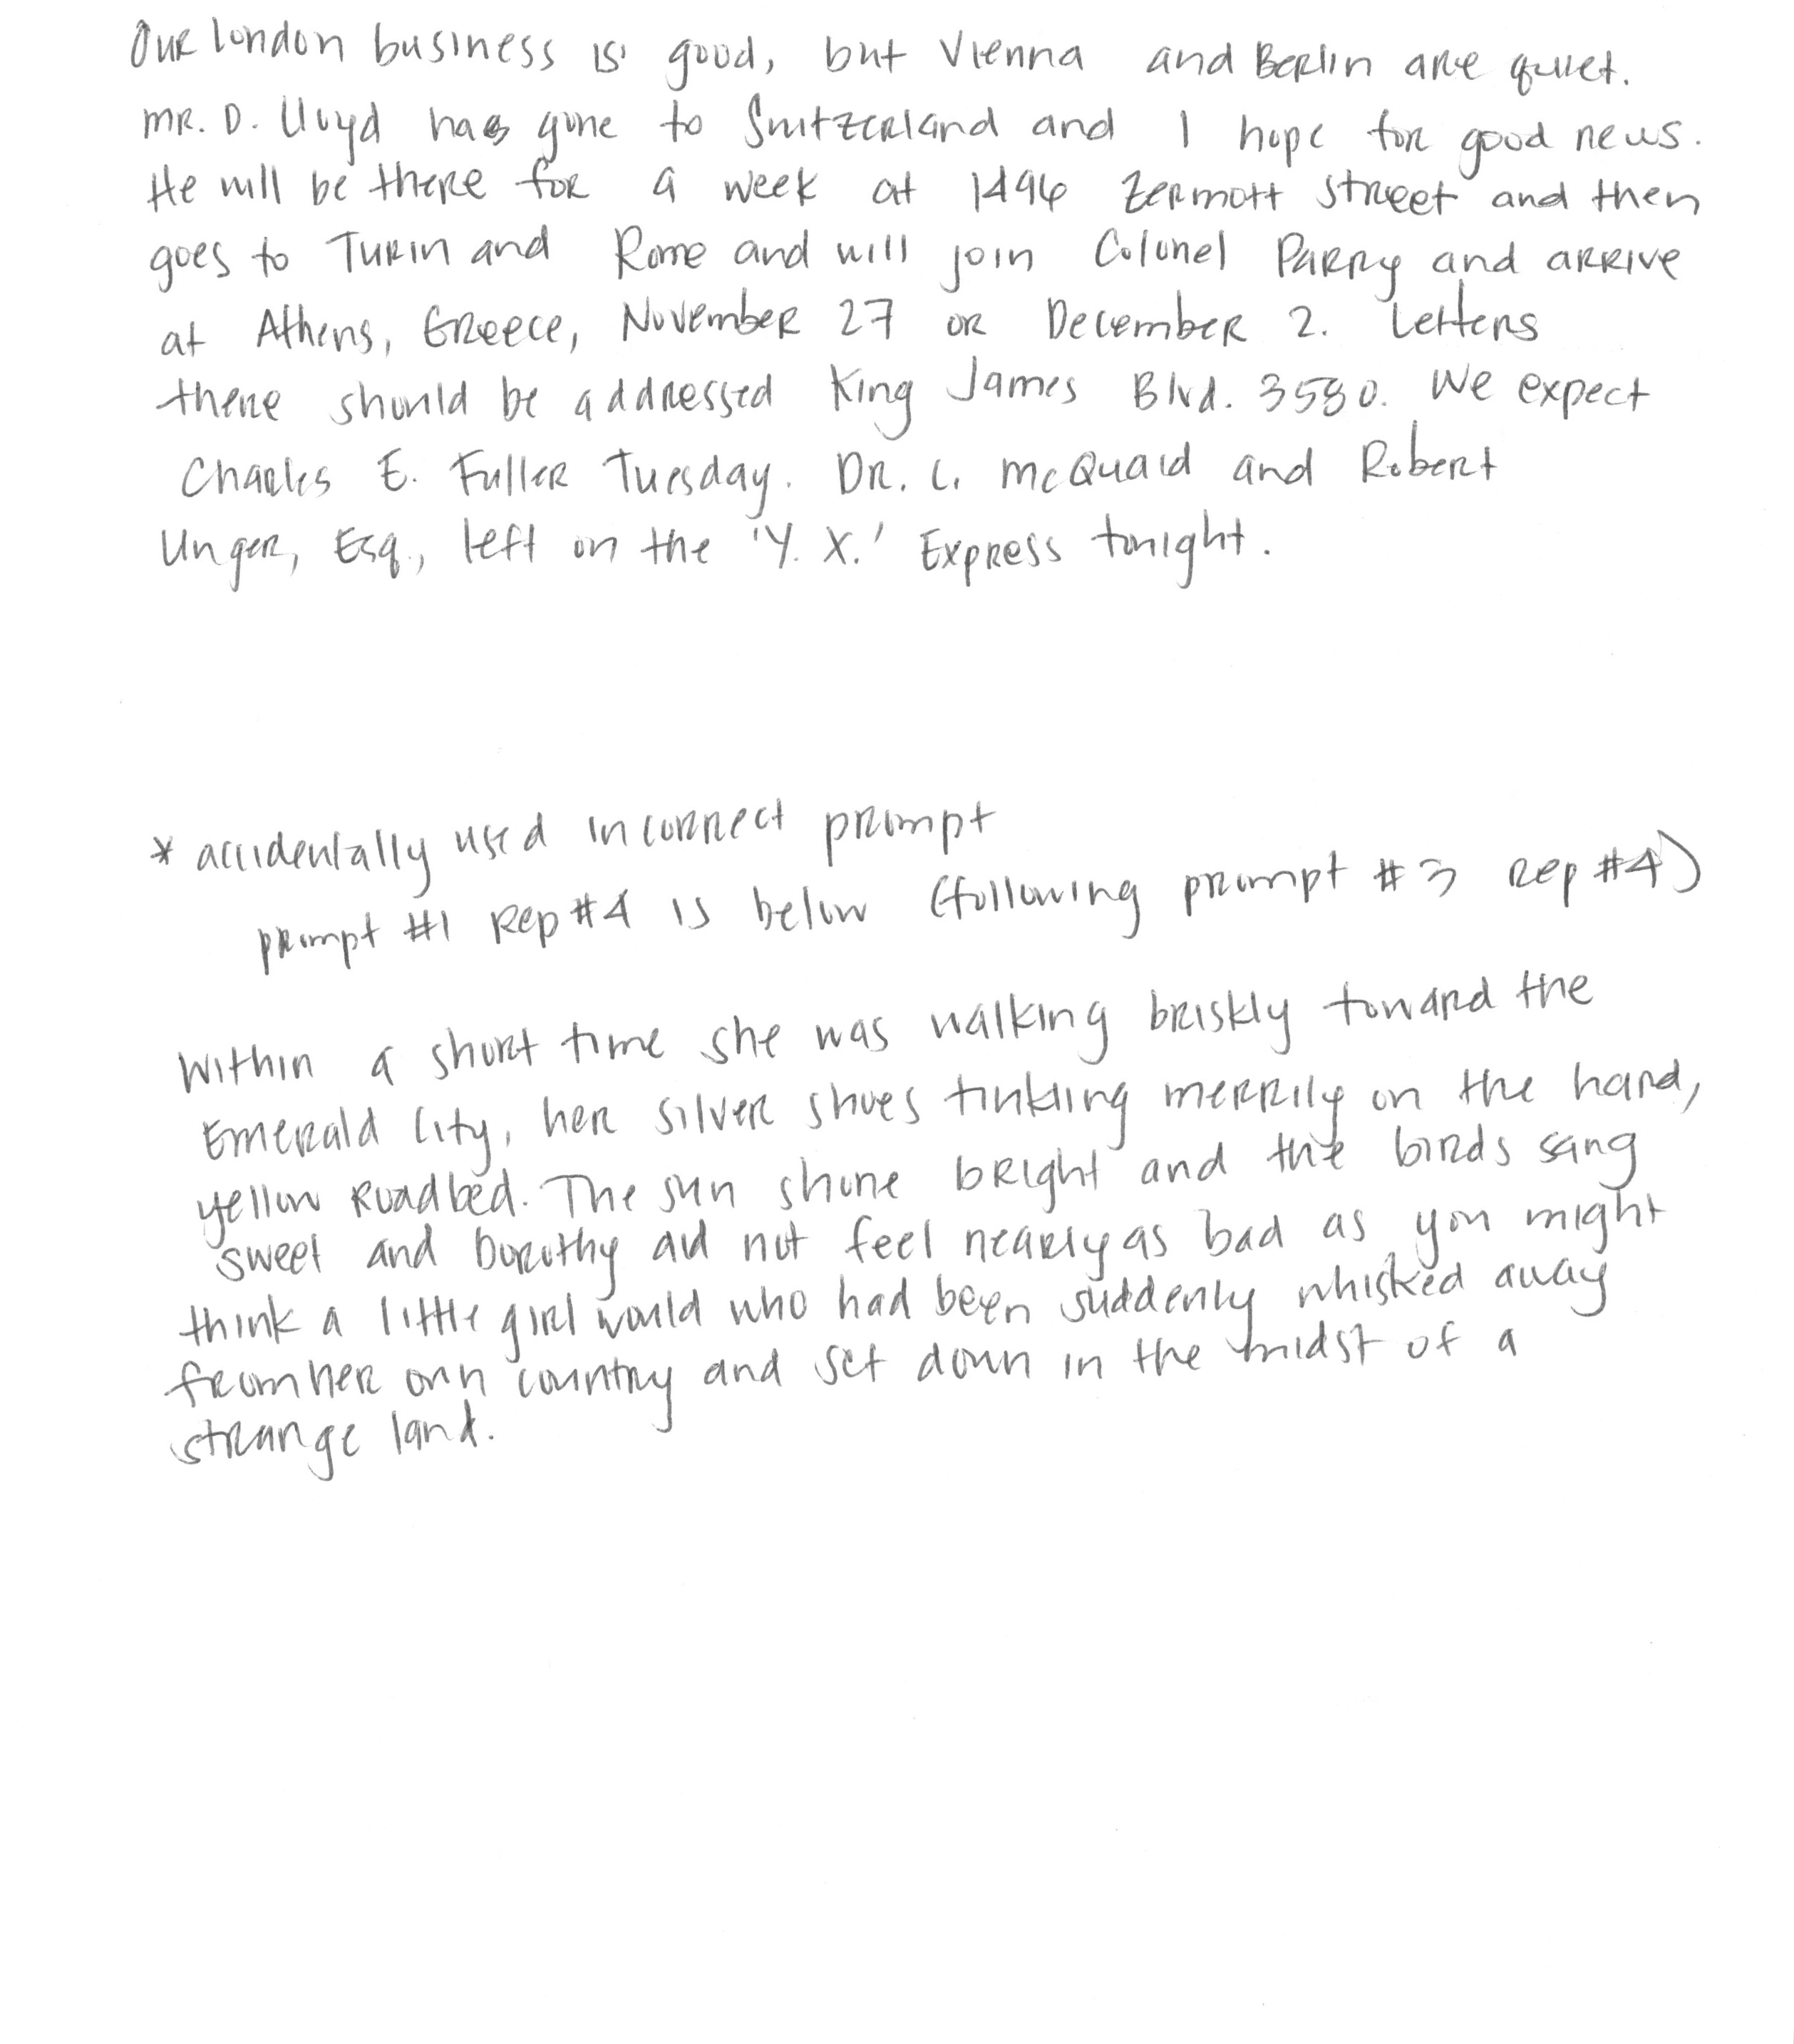 Our London business is good, but Vienna and Berlin are quiet.
Mr. D. Lloyd has gone to Switzerland and I hope for good news.
He will be there for a week at 1496 Zermott Street and then
goes to Turin and Rome and will join Colonel Parry and arrive
at Athens, Greece, November 27 or December 2. Letters
there should be addressed King James Blvd. 3580. We expect
Charles E. Fuller Tuesday. Dr. L. McQuaid and Robert
Unger, Esq., left on the 'Y. X.' Express tonight.
* accidentally used incorrect prompt
prompt #1 Rep #4 is below (following prompt #3 Rep #4)
Within a short time she was walking briskly toward the
Emerald City, her silver shoes tinkling merrily on the hard,
yellow roadbed. The sun shone bright and the birds sang
sweet and Dorothy did not feel nearly as bad as you might
think a little girl would who had been suddenly whisked away
from her own country and set down in the midst of a
strange land.